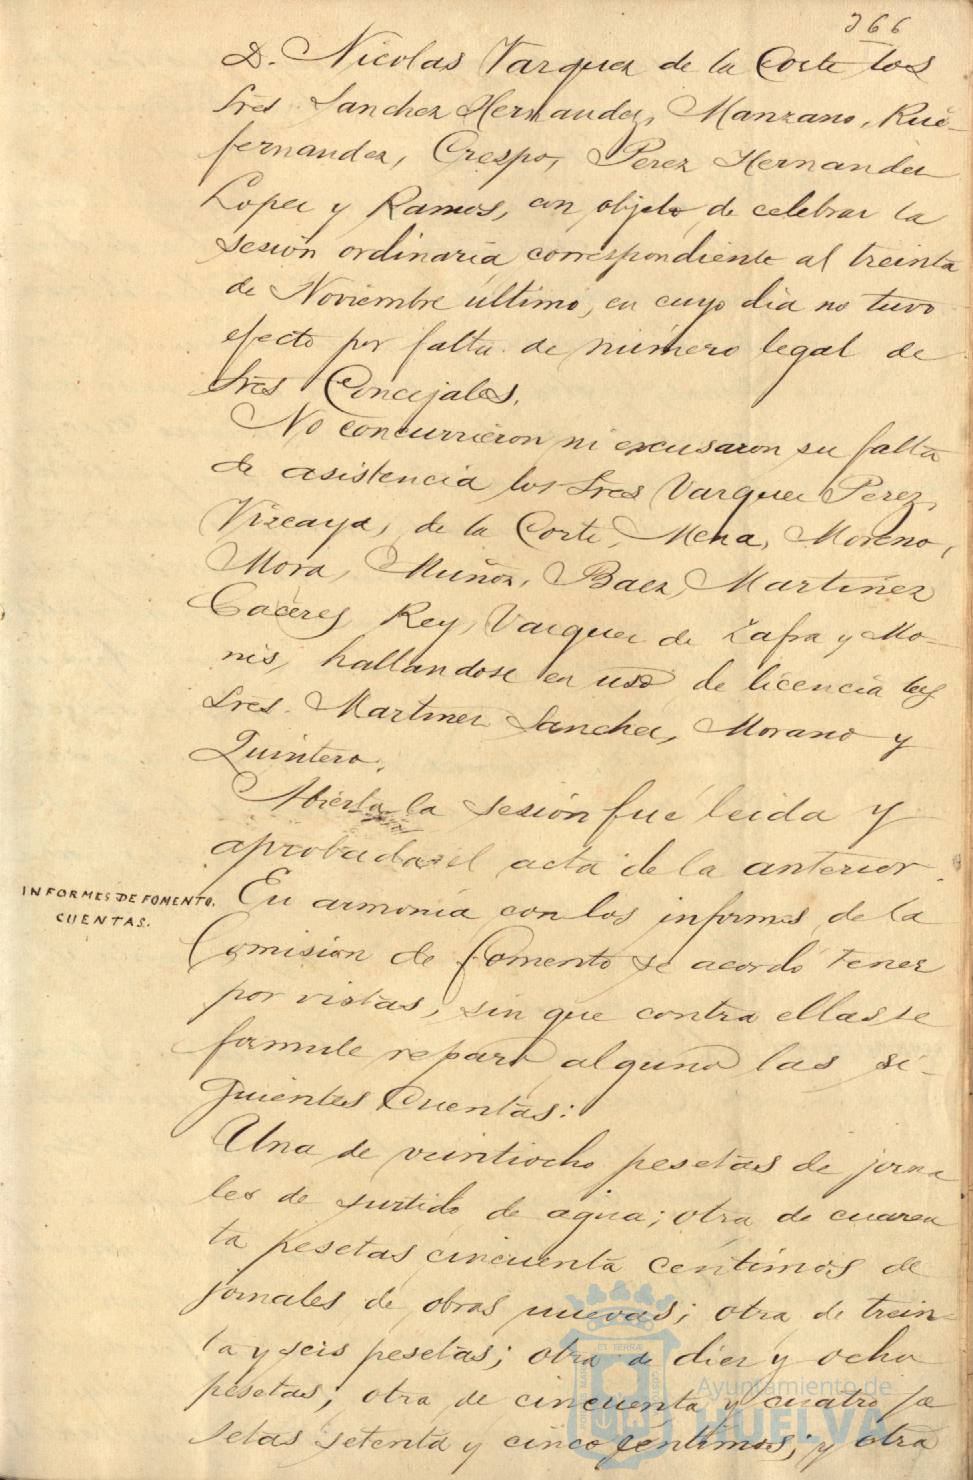 366
D. Nicolas Vazquez de la Corte los
Sres Sanchez Hernandez, Manzano, Rui-
fernandez, Crespo, Perez Hernandez
Lopez y Ramos, con objeto de celebrar la
sesión ordinaria correspondiente al treinta
de Noviembre último, en cuyo dia no tuvo
efecto por falta de número legal de
Sres Concejales.
No concurrieron ni excusaron su falta
de asistencia los Sres Vazquez Perez,
Vizcaya, de la Corte, Mena, Moreno,
Mora, Muñoz, Baez, Martinez
Caceres, Rey, Vazquez de Zafra y Mo-
nis, hallandose en uso de licencia los
Sres. Martinez Sanchez, Morano y
Quintero.
Abierta la sesión fué leida y
aprobada el acta de la anterior.
INFORMES DE FOMENTO.
CUENTAS.
En armonia con los informes de la
Comisión de Fomento se acordó tener
por vistas, sin que contra ellas se
formule reparo alguno las si-
guientes Cuentas:
Una de veintiocho pesetas de jorna
les de surtido de agua; otra de cuaren
ta pesetas cincuenta centimos de
jornales de obras nuevas; otra de trein-
ta y seis pesetas; otra de diez y ocho
pesetas; otra de cincuenta y cuatro pe
setas setenta y cinco centimos; y otra
Ayuntamiento de
HUELVA